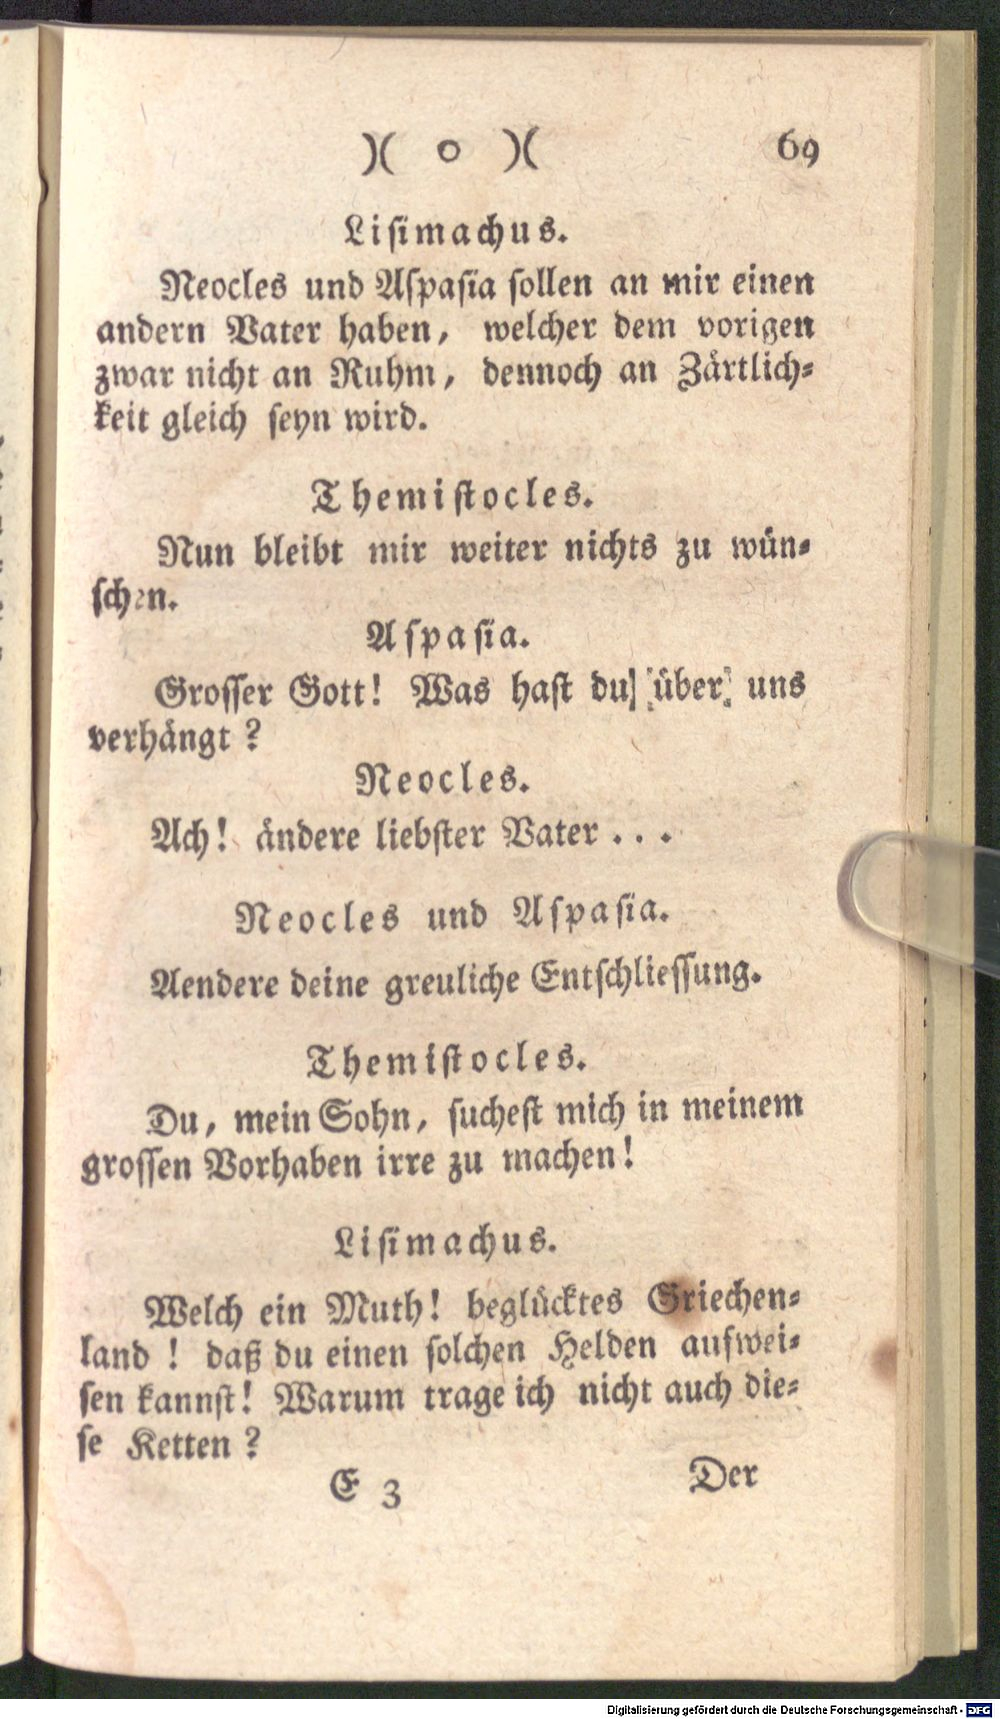 )( o )( 69
Lisimachus.
Neocles und Aspasia sollen an mir einen
andern Vater haben, welcher dem vorigen
zwar nicht an Ruhm, dennoch an Zärtlich-
keit gleich seyn wird.
Themistocles.
Nun bleibt mir weiter nichts zu wün-
schen.
Aspasia.
Grosser Gott! Was hast du über uns
verhängt?
Neocles.
Ach! ändere liebster Vater . . .
Neocles und Aspasia.
Aendere deine greuliche Entschliessung.
Themistocles.
Du, mein Sohn, suchest mich in meinem
grossen Vorhaben irre zu machen!
Lisimachus.
Welch ein Muth! beglücktes Griechen-
land! daß du einen solchen Helden aufwei-
sen kannst! Warum trage ich nicht auch die-
se Ketten?
E 3 Der
Digitalisierung gefördert durch die Deutsche Forschungsgemeinschaft - DFG